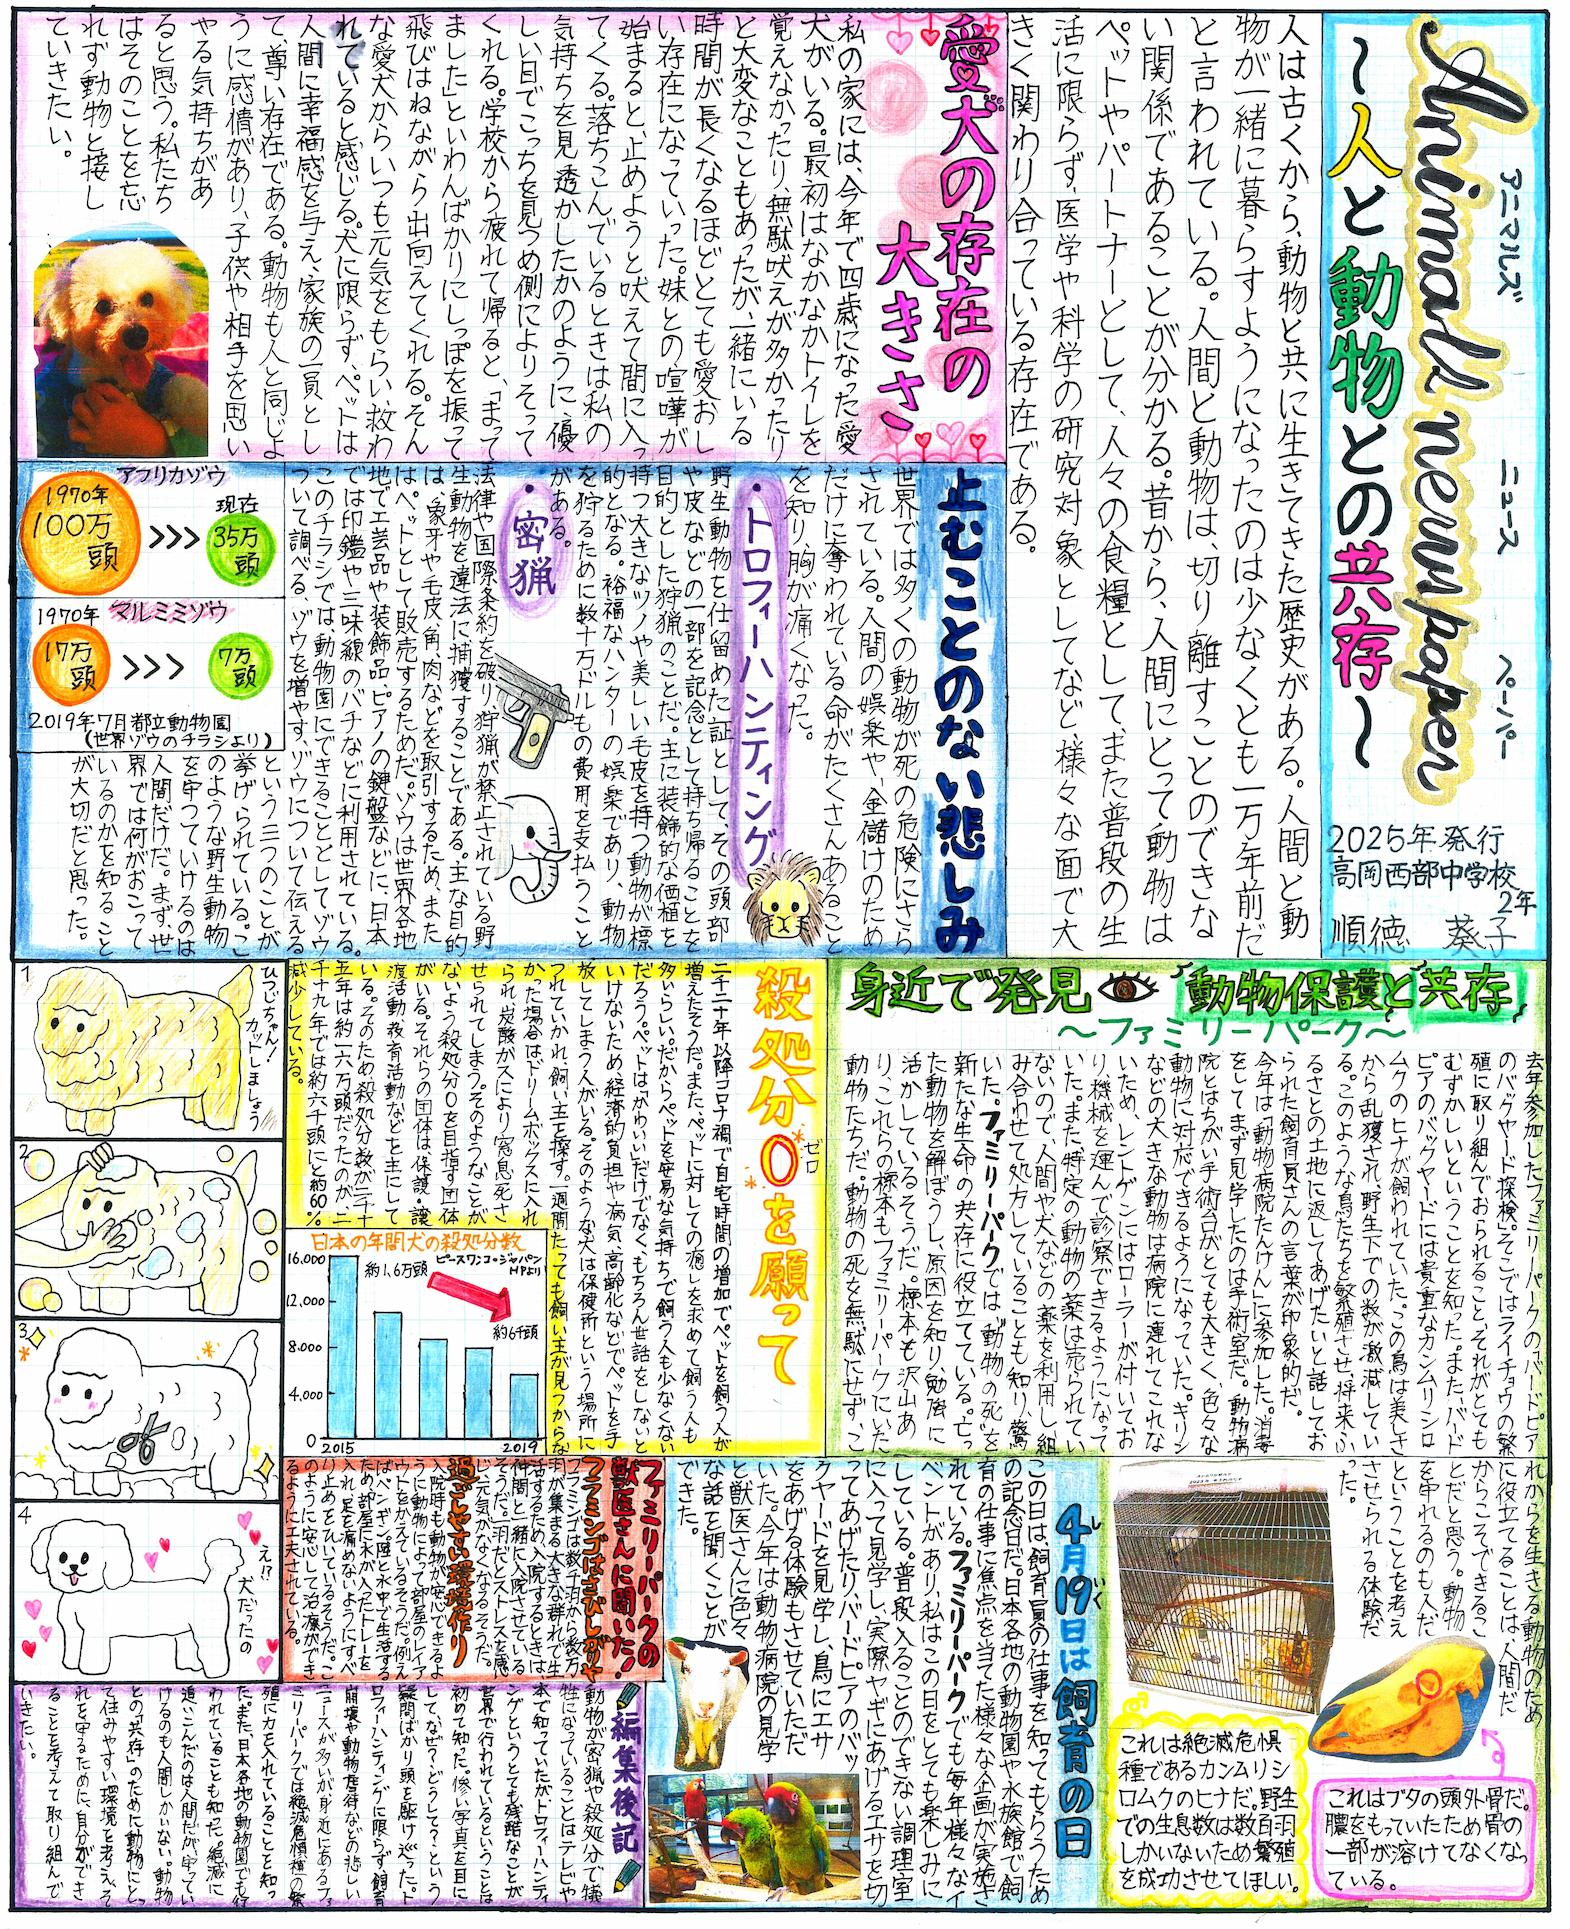 アニマルズ ニュース ペーパー
Animals newspaper
～人と動物との共存～
2025年発行
高岡西部中学校
2年
順徳 葵子
人は古くから、動物と共に生きてきた歴史がある。人間と動
物が一緒に暮らすようになったのは少なくとも一万年前だ
と言われている。人間と動物は、切り離すことのできな
い関係であることが分かる。昔から、人間にとって動物は
ペットやパートナーとして、人々の食糧として、また普段の生
活に限らず、医学や科学の研究対象としてなど、様々な面で大
きく関わり合っている存在である。
愛犬の存在の
大きさ
私の家には、今年で四歳になった愛
犬がいる。最初はなかなかトイレを
覚えなかったり、無駄吠えが多かったり
と大変なこともあったが、一緒にいる
時間が長くなるほどとても愛おし
い存在になっていった。妹との喧嘩が
始まると止めようと吠えて間に入っ
てくる。落ちこんでいるときは私の
気持ちを見透かしたかのように、優
しい目でこっちを見つめ側によりそって
くれる。学校から疲れて帰ると、「まって
ました」といわんばかりにしっぽを振って
飛びはねながら出向えてくれる。そん
な愛犬からいつも元気をもらい、救わ
れていると感じる。犬に限らず、ペットは
人間に幸福感を与え、家族の一員とし
て、尊い存在である。動物も人と同じよ
うに感情があり、子供や相手を思い
やる気持ちがあ
ると思う。私たち
はそのことを忘
れず動物と接し
ていきたい。
止むことのない悲しみ
世界では多くの動物が死の危険にさら
されている。人間の娯楽や、金儲けのため
だけに奪われている命がたくさんあること
を知り、胸が痛くなった。
・トロフィーハンティング
野生動物を仕留めた証として、その頭部
や皮などの一部を記念として持ち帰ることを
目的とした狩猟のことだ。主に装飾的な価値を
持つ大きなツノや美しい毛皮を持つ動物が標
的となる。裕福なハンターの娯楽であり、動物
を狩るために数十万ドルもの費用を支払うこと
がある。
・密猟
法律や国際条約を破り、狩猟が禁止されている野
生動物を違法に捕獲することである。主な目的
は、象牙や毛皮、角、肉などを取引するため、また
はペットとして販売するためだ。ゾウは世界各地
地で工芸品や装飾品、ピアノの鍵盤などに、日本
では印鑑や三味線のバチなどに利用されている。
このチラシでは、動物園にできることとしてゾウ
ついて調べる、ゾウを増やす、ゾウについて伝える
という三つのことが
挙げられている。こ
のような野生動物
を守っていけるのは
人間だけだ。まず、世
界では何がおこって
いるのかを知ること
が大切だと思った。
アフリカゾウ
1970年
100万頭
>>>
現在
35万頭
マルミミゾウ
1970年
17万頭
>>>
7万頭
2019年7月都立動物園
(世界ゾウのチラシより)
身近で発見 動物保護と共存
～ファミリーパーク～
去年参加したファミリーパークのバードピア
のバックヤード探検。そこではライチョウの繁
殖に取り組んでおられること、それがとても
むずかしいということを知った。また、バード
ピアのバックヤードには貴重なカンムリシロ
ムクのヒナが飼われていた。この鳥は美しさ
から乱獲され、野生下での数が激減してい
る。このような鳥たちを繁殖させ、将来ふ
るさとの土地に返してあげたいと話してお
られた飼育員さんの言葉が印象的だ。
今年は「動物病院たんけん」に参加した。消毒
をしてまず見学したのは手術室だ。動物病
院とはちがい手術台がとても大きく、色々な
動物に対応できるようになっていた。キリン
などの大きな動物は病院に連れてこれな
いため、レントゲンにはローラーが付いてお
り、機械を運んで診察できるようになって
いた。また特定の動物の薬は売られてい
ないので、人間や犬などの薬を利用し組
み合わせて処方していることも知り、驚
いた。ファミリーパークでは「動物の死」を
新たな生命の共存に役立てている。亡っ
た動物を解ぼうし、原因を知り、勉強に
活かしているそうだ。標本も沢山あ
り、これらの標本もファミリーパークにいた
動物たちだ。動物の死を無駄にせず、こ
れからを生きる動物のため
に役立てることは人間だ
からこそできるこ
とだと思う。動物
を守れるのも人だ
ということを考え
させられる体験だ
った。
これは絶滅危惧
種であるカンムリシ
ロムクのヒナだ。野生
での生息数は数百羽
しかいないため繁殖
を成功させてほしい。
これはブタの頭外骨だ。
膿をもっていたため骨の
一部が溶けてなくなっ
ている。
殺処分0を願って
ゼロ
二千二十年以降コロナ禍で自宅時間の増加でペットを飼う人が
増えたそうだ。また、ペットに対しての癒しを求めて飼う人も
多いらしい。だからペットを安易な気持ちで飼う人も少なくない
だろう。ペットは「かわいい」だけでなく、もちろん世話をしないと
いけないため、経済的負担や病気、高齢化などでペットを手
放してしまう人がいる。そのような犬は保健所という場所に
つれていかれ、飼い主を探す。一週間たっても飼い主が見つからな
かった場合は、ドリームボックスに入れ
られ炭酸ガスにより窒息死さ
せられてしまう。そのようなことが
ないよう殺処分0を目指す団体
がいる。それらの団体は、保護・譲
渡活動、教育活動などを主にして
いる。そのため、殺処分数が二千十
五年は約一六万頭だったのが、二
千十九年では約六千頭にと約60%
減少している。
日本の年間犬の殺処分数
ピースワンコ・ジャパン
HPより
16,000
12,000
8,000
4,000
0
2015
2019
約1.6万頭
約6千頭
1
ひつじちゃん!
カットしましょう
2
3
4
え!?
犬だったの
4月19日は飼育の日
しいく
この日は、飼育員の仕事を知ってもらうため
の記念日だ。日本各地の動物園や水族館で飼
育の仕事に焦点を当てた様々な企画が実施さ
れている。ファミリーパークでも毎年様々なイ
ベントがあり、私はこの日をとても楽しみに
している。普段入ることのできない調理室
に入って見学し、実際ヤギにあげるエサを切
ってあげたり、バードピアのバッ
クヤードを見学し、鳥にエサ
をあげる体験もさせていただ
いた。今年は動物病院の見学
と獣医さんに色々
な話を聞くことが
できた。
ファミリーパークの
獣医さんに聞いた!
フラミンゴはさびしがりや
フラミンゴは数千羽から数万
羽が集まる大きな群れで生
活するため、入院するときは、
仲間と一緒に入院させている
そうだ。一羽だとストレスを感
じ元気がなくなるそうだ。
過ごしやすい環境作り
入院時も動物が安心できるよ
うに動物によって部屋のレイア
ウトをかえているそうだ。例え
ばペンギン。陸と水中で生活する
ため、部屋に水が入ったトレーを
入れ、足を痛めないようにすべ
り止めをひいているそうだ。こ
のように安心して治療ができ
るように工夫されている。
編集後記
動物が密猟や殺処分で犠
牲になっていることはテレビや
本で知っていたが、トロフィーハンティ
ングというとても残酷なことが
世界で行われているということは
初めて知った。惨い写真を目に
して、「なぜ?」「どうして?」という
疑問ばかり頭を駆け巡った。ト
ロフィーハンティングに限らず、飼育
崩壊や動物虐待などの悲しい
ニュースが多いが、身近にあるファ
ミリーパークでは絶滅危惧種の繁
殖に力を入れていることを知っ
た。また、日本各地の動物園でも行
われていることも知った。絶滅に
追いこんだのは人間だが、守ってい
けるのも人間しかいない。動物
との「共存」のために動物にとっ
て住みやすい環境を考え、そ
れを守るために、自分ができ
ることを考えて取り組んで
いきたい。